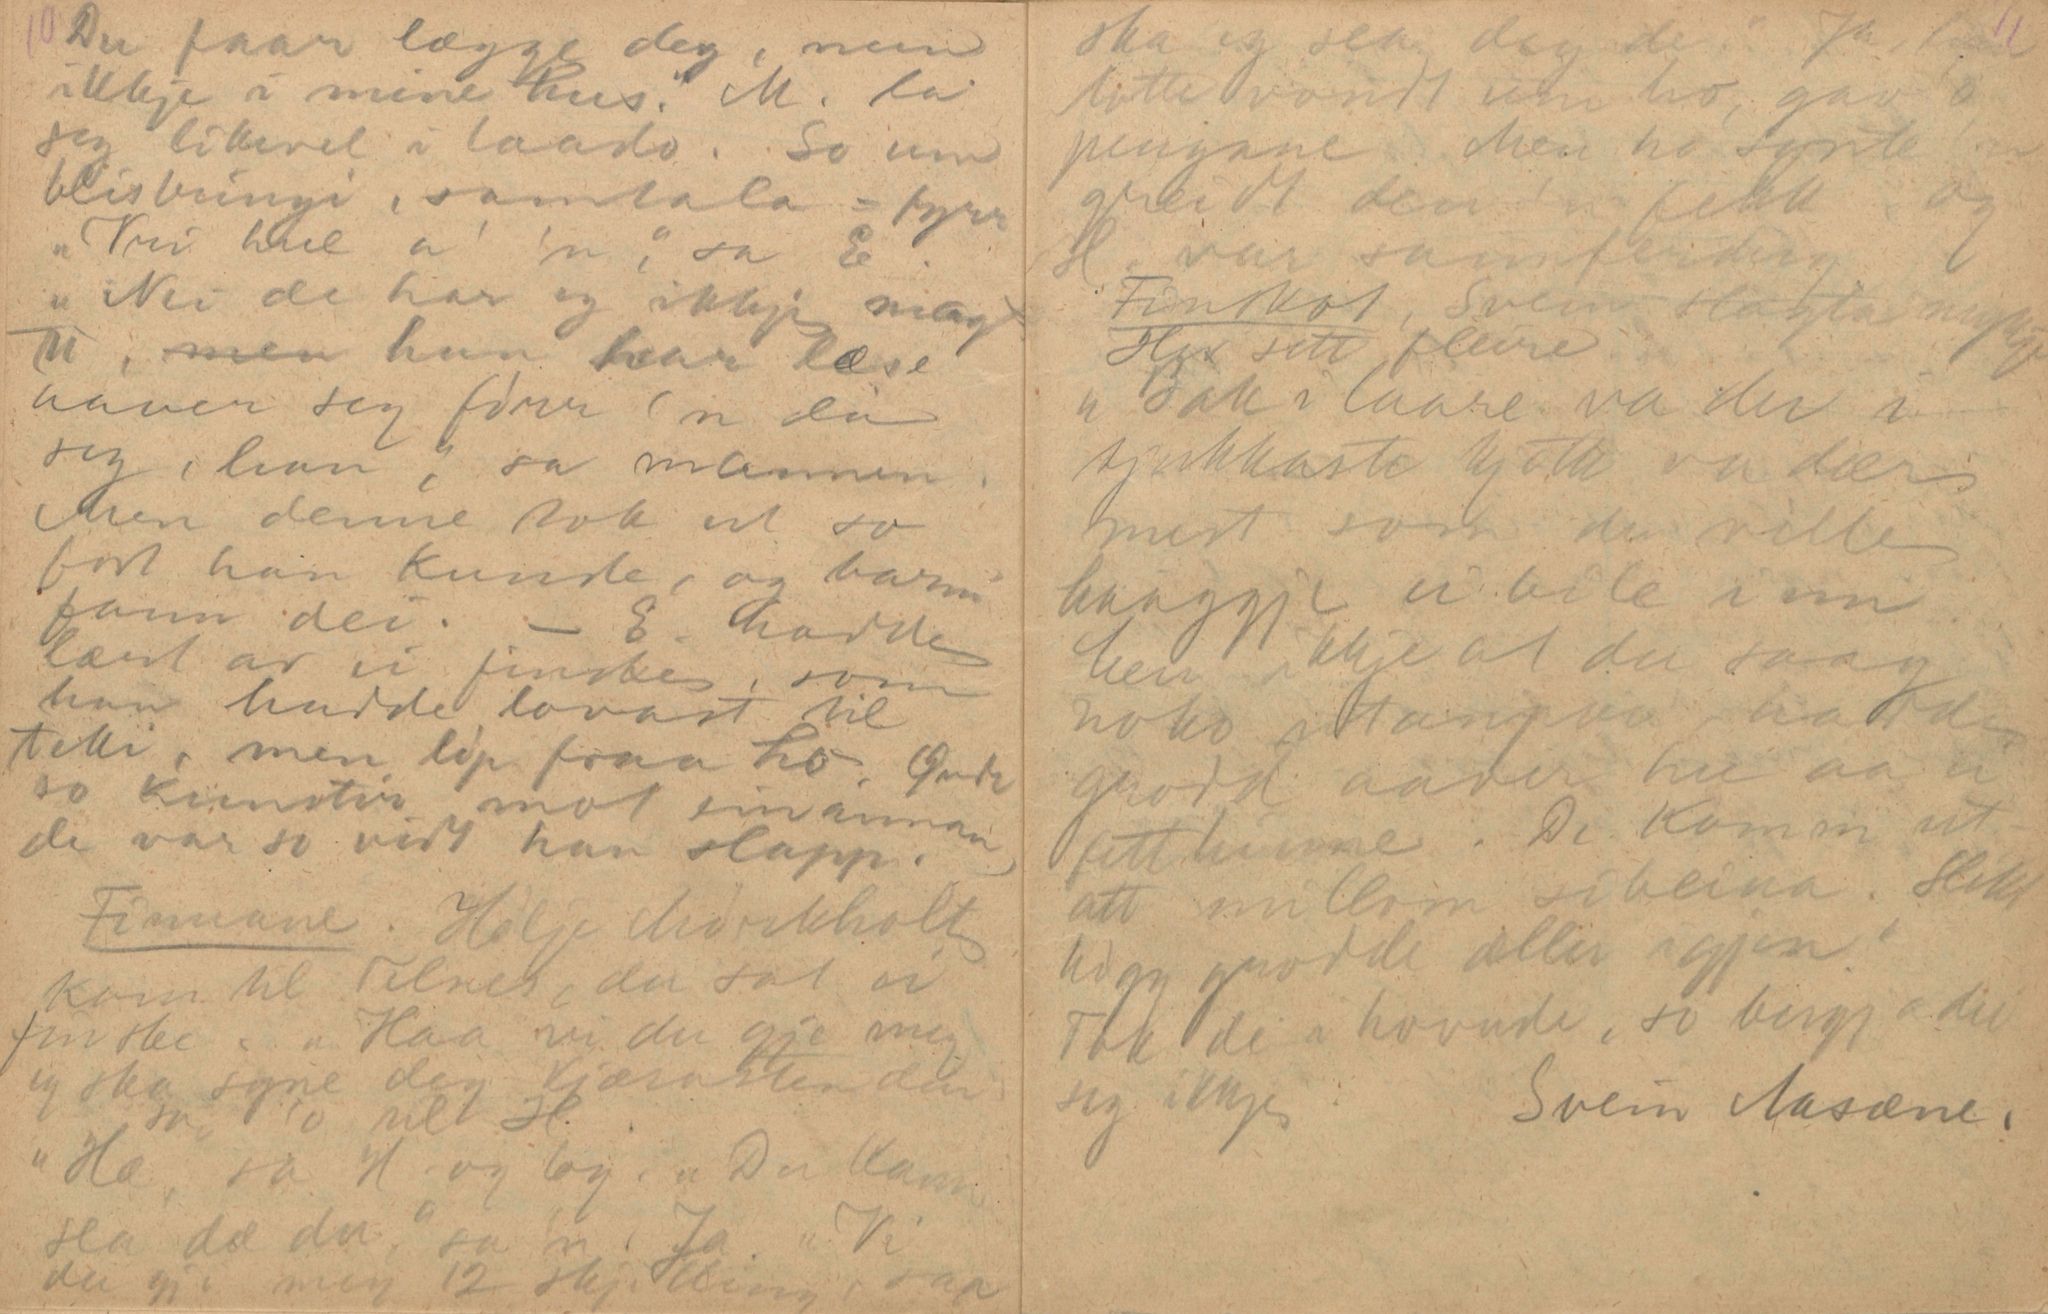 10
Du faar lægge deg, men
ikkje i mine hus." M. la
seg likevel i laado. So um
blisbungi, samtala - fyrr
"Vri hue a' 'n," sa E.
"Nei de har eg ikkje magt
ti, men han har læse
aaver seg fórr 'n la
seg, han," sa mannen.
Men denne tok ut so
fort han kunde, og barni
fann dei. — E. hadde
lært av ei finske, som
han hadde lovast til
men lóp fraa ho.
so kunstir mot einannan
de var so vidt han slapp.
Finnane. Hølje Mörkholt
kom til Telnes, der sat ei
finske. "Haa vi du gje meg
eg ska syne deg kjærasten din
sa 'o til H.
"Hæ, sa H. og log. "Du kann
sla dæ du," sa 'n. Ja. "Vi
du gje meg 12 skjelling, saa
11
ska eg sea deg de." Ja,
totte vondt um ho, gav 'o
pengane. Men ho synte 'n
greidt den 'n fekk. og
H. var samferdig
Finskot, Svein slagta
sett fleire
"Bak i laare va der i
sjukkaste kjøtt va dær
mest som du ville
haaggje ei bile inn
hen ikkje at du saag
noko utanpaa, hadde
grodd aaver hu aa ei
fetthinne. De komm ut-
att millom sibeina. Slikt
hógg grodde aller igjen."
Tok de i hovude, so berga dei
seg ikkje
Svein Aasæne.